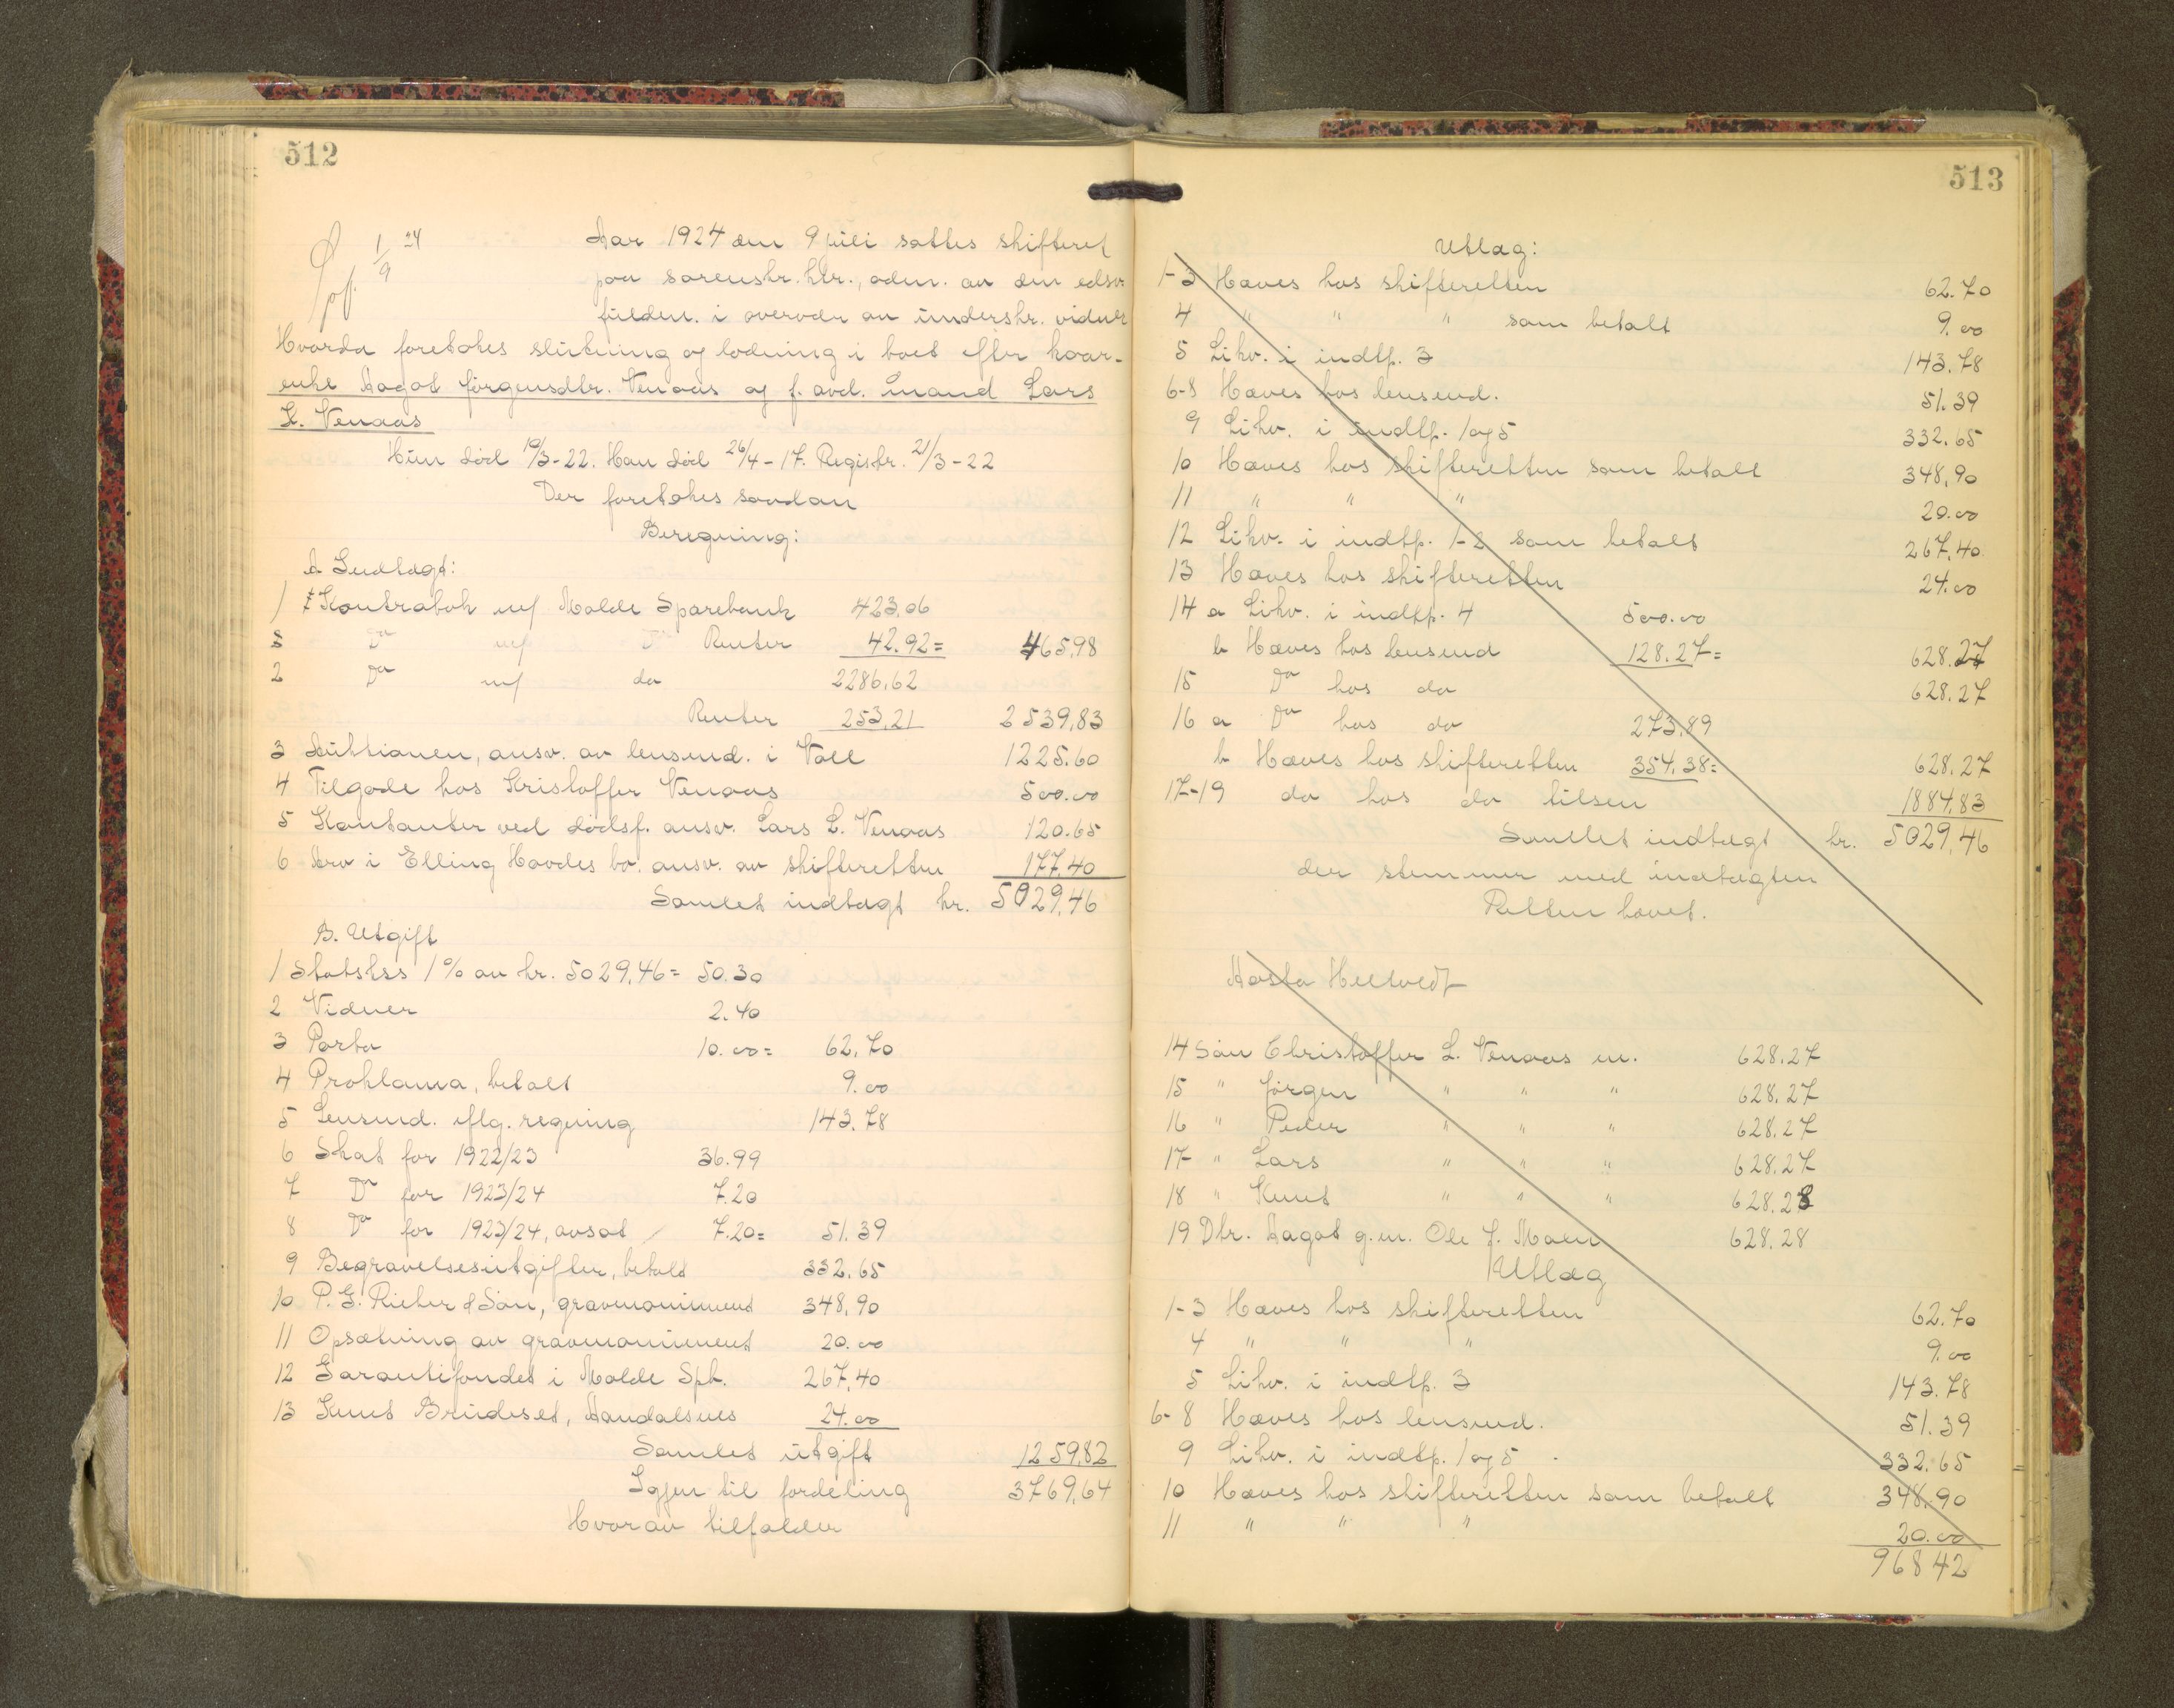 512
1/9 24
Aar 1924 den 9 juli sattes skifteret
paa sorenskr. ktr., adm. av den edsv
fuldm. i overvær av underskr. vidner
Hvorda foretokes slutning og lodning i boet efter kaar-
enke Aagot Jørgensdtr. Venaas og f. avd. mand Lars
L. Venaas
Hun død 19/3-22. Han død 26/4-17. Registr. 21/3-22
Der foretokes saadan
Beregning:
A Indtægt:
1 Kontrabok m/ Molde Sparebank 423,06
Do m/ Do Renter 42.92= 465,98
2 Do m/ do 2286,62
Renter 253,21 2539,83
3 Auktionen, ansv. av lensmd. i Voll 1225.60
4 Tilgode hos Kristoffer Venaas 500.00
5 Kontanter ved dødsf. ansv. Lars L. Venaas 120.65
6 Arv i Elling Hovdes bo. ansv. av skifteretten 177,40
Samlet indtægt kr. 5029,46
B. Utgift
1 Statskss 1% av kr. 5029,46= 50.30
2 Vidner 2.40
3 Porto 10.00= 62,70
4 Proklama, betalt 9.00
5 Lensmd. iflg. regning 143.78
6 Skat for 1922/23 36.99
7 Do for 1923/24 7.20
8 Do for 1923/24, avsat 7.20= 51.39
9 Begravelsesutgifter, betalt 332.65
10 P. G. Rieber & Søn, gravmonument 348,90
11 Opsætning av gravmonument 20.00
12 Garantifondet i Molde Spb. 267,40
13 Knut Brudeset, Aandalsnes 24.00
Samlet utgift 1259,82
Igjen til fordeling 3769,64
Hvorav tilfalder
513
Utlæg:
1-3 Hæves hos skifteretten 62.70
4 " " " som betalt 9.00
5 Likv. i indtp. 3 143.78
6-8 Hæves hos lensmd. 51.39
9 Likv. i indtp. 1 og 5 332.65
10 Hæves hos skifteretten som betalt 348,90
11 " " " 20.00
12 Likv. i indtp. 1-2 som betalt 267,40
13 Hæves hos skifteretten 24.00
14 a Likv. i indtp. 4 500.00
b Hæves hos lensmd 128.27= 628.27
15 Do hos do 628.27
16 a Do hos do 273,89
b Hæves hos skifteretten 354.38= 628.27
17-19 do hos do tilsm 1884,83
Samlet indtægt kr. 5029,46
der stemmer med indtægten
Retten hævet.
Aasta Heltvedt
14 Søn Christoffer L. Venaas m. 628.27
15 " Jørgen " " " 628.27
16 " Peder " " " 628.27
17 " Lars " " " 628.27
18 " Knut " " " 628.28
19 Dtr. Aagot g.m. Ole J. Moen 628.28
Utlæg
1-3 Hæves hos skifteretten 62.70
4 " " " 9.00
5 Likv. i indtp. 3 143.78
6-8 Hæves hos lensmd. 51.39
9 Likv. i indtp. 1 og 5 332.65
10 Hæves hos skifteretten som betalt 348.90
11 " " " 20.00
968 42